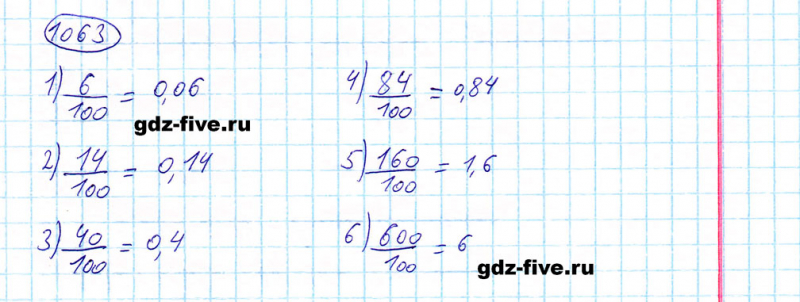 1063
1) 6/100 = 0,06
4) 84/100 = 0,84
gdz-five.ru
2) 14/100 = 0,14
5) 160/100 = 1,6
3) 40/100 = 0,4
6) 600/100 = 6
gdz-five.ru